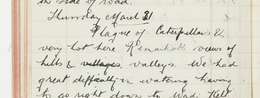 in side of road.
Thursday March 21
Plague of Caterpillars &
very hot here Remarkable views of
hills & villages valleys. We had
great difficulty in watering having
to go right down to Wadi Kelt